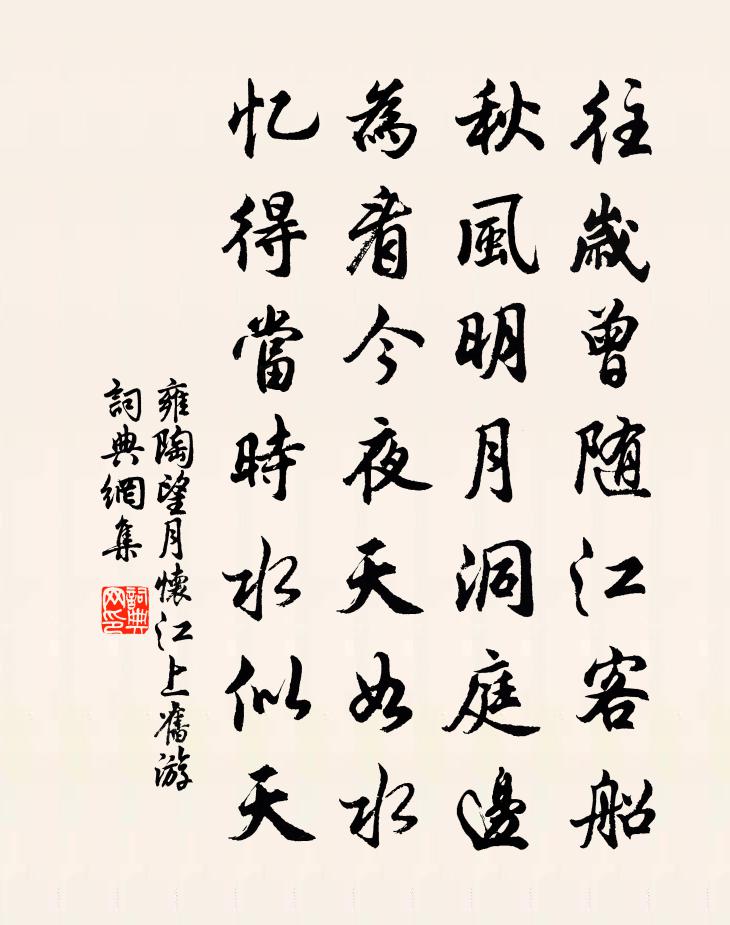 往歲曾随江客船
秋風明月洞庭邊
為看今夜天如水
忆得當時水似天
雍陶望月懷江上舊游
詞典網集
詞典
网印